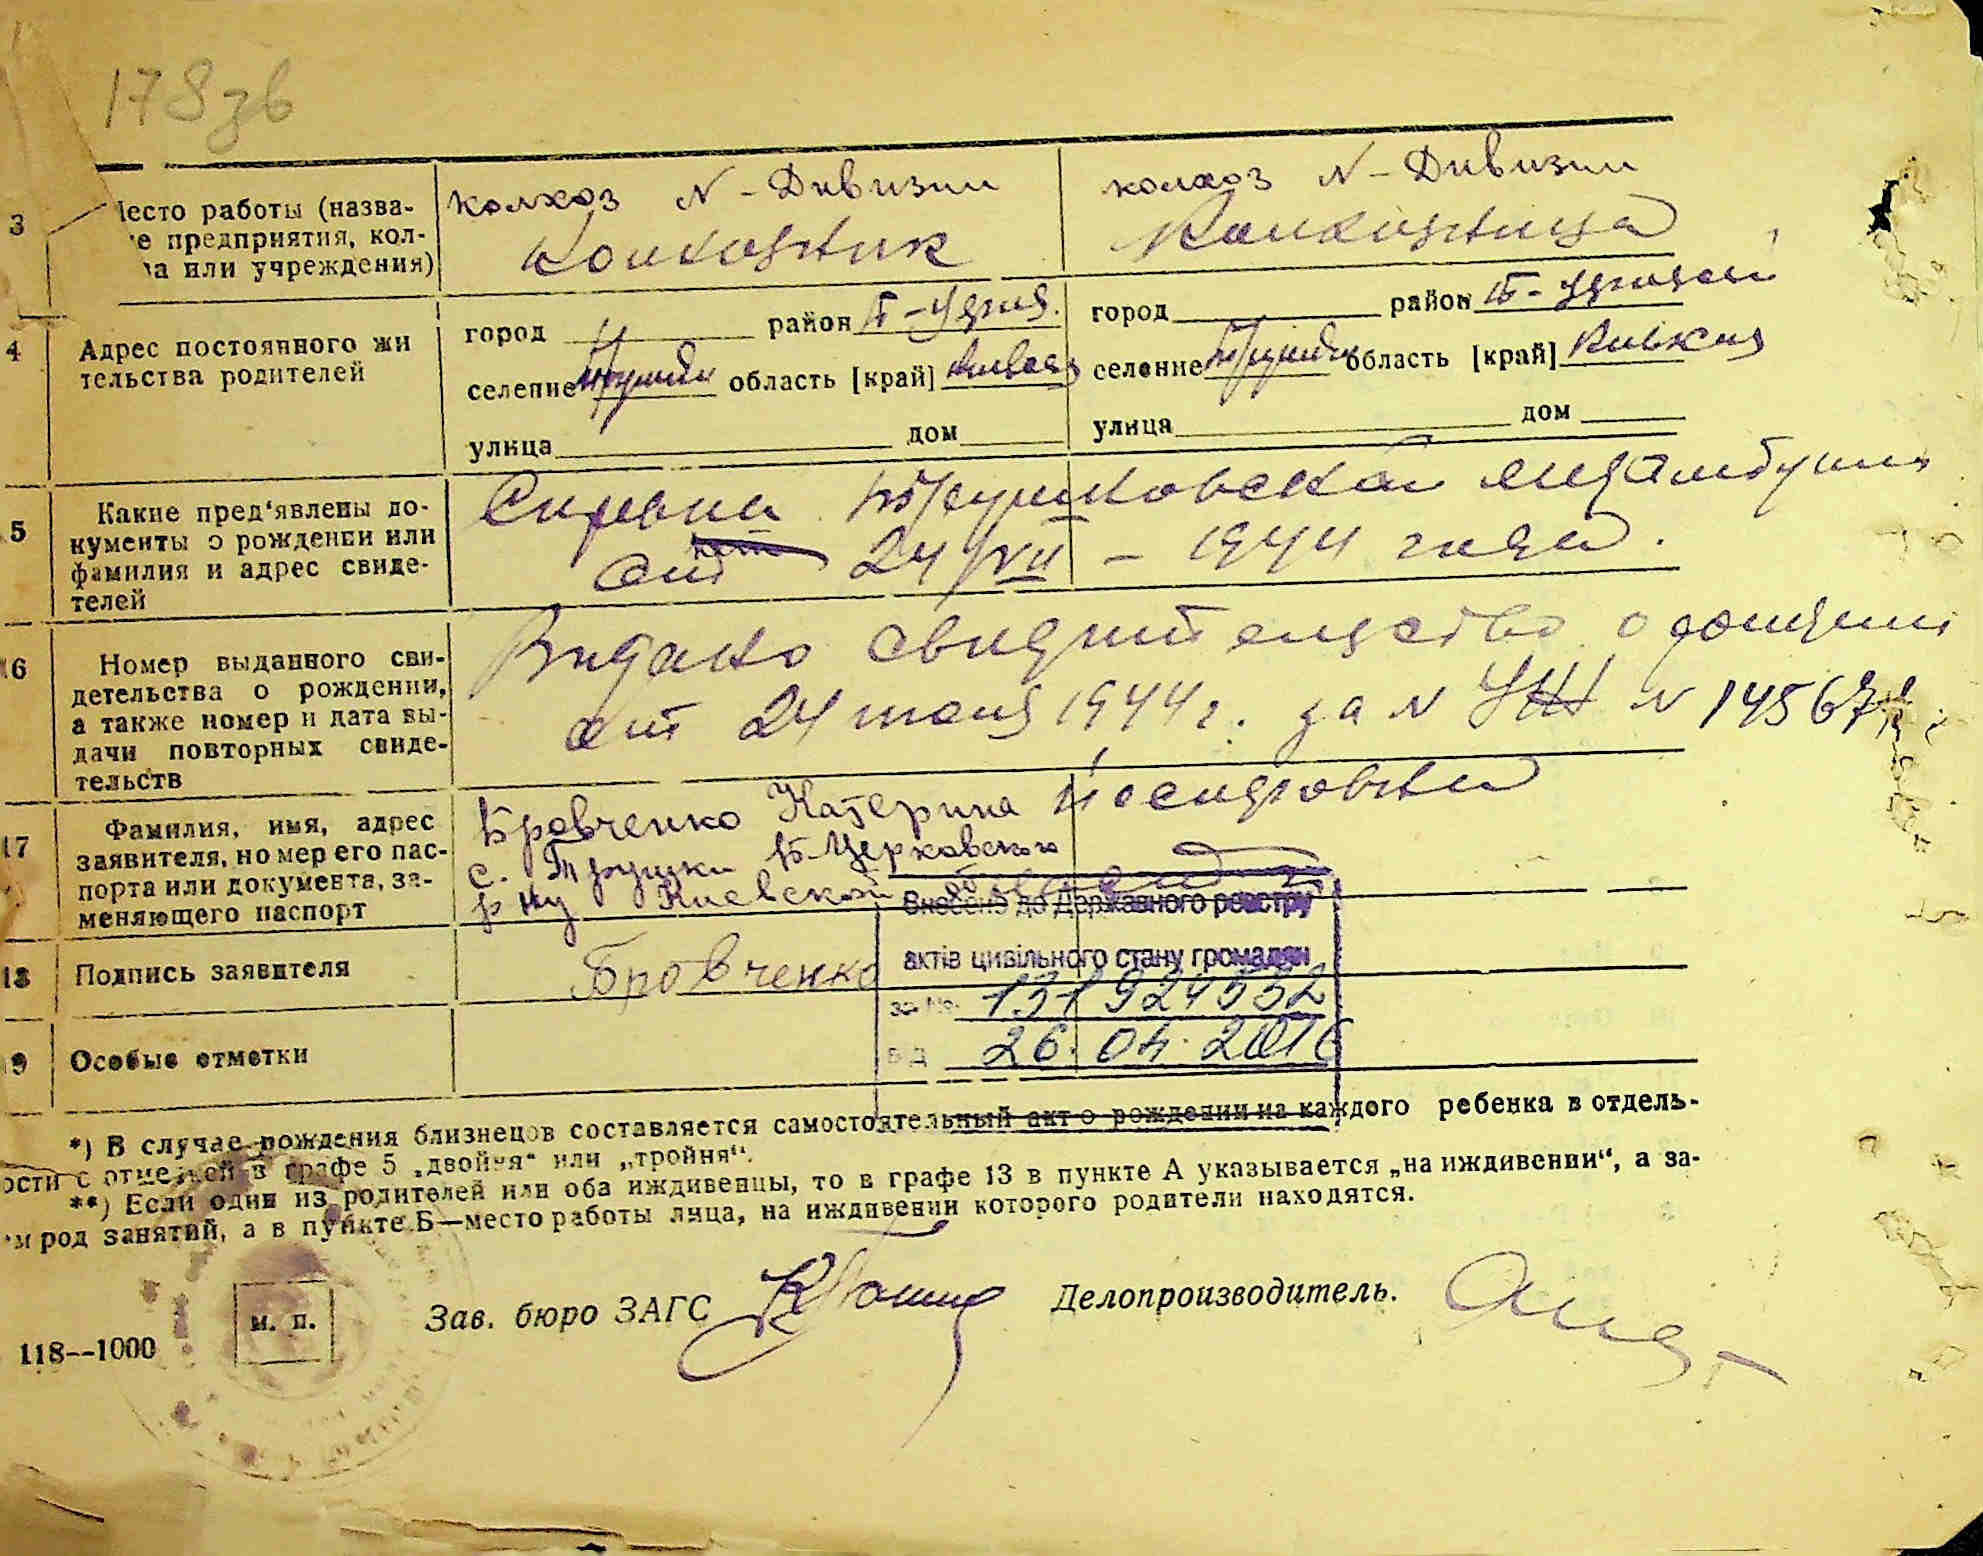 178зв
3 Место работы (назва- колхоз N - Дивизии колхоз N - Дивизии
е предприятия, кол- Колхозник Колхозница
за или учреждения)
город район Б-Церк. город район Б-Церковский
4 Адрес постоянного жи
тельства родителей
селение Трушки область [край] Киевская селение Трушки область [край] Киевская
улица дом улица дом
5 Какие пред'явлены до- Справка Трушковской
кументы о рождении или от 24/VII - 1944 года.
фамилия и адрес свиде-
телей
16 Номер выданного сви- Видано свидительство о рождении
детельства о рождении,
а также номер и дата вы- от 24 июля 1944 г. за N N 145671
дачи повторных свиде-
тельств
17 Фамилия, имя, адрес Бровченко Катерина Иосиповна
заявителя, номер его пас- с. Трушки Б-Церковского
порта или документа, за- р-ну Киевской
меняющего паспорт
Внесено до Державного реєстру
18 Подпись заявителя Бровченко
актів цивільного стану громадян
за № 131924532
19 Особые отметки
від 26.04.2016
*) В случае рождения близнецов составляется самостоятельный акт о рождении на каждого ребенка в отдель-
ости с отметкой в графе 5 „двойня“ или „тройня“.
**) Если один из родителей или оба иждивенцы, то в графе 13 в пункте А указывается „на иждивении“, а за-
м род занятий, а в пункте Б—место работы лица, на иждивении которого родители находятся.
м. п. Зав. бюро ЗАГС Делопроизводитель.
118--1000